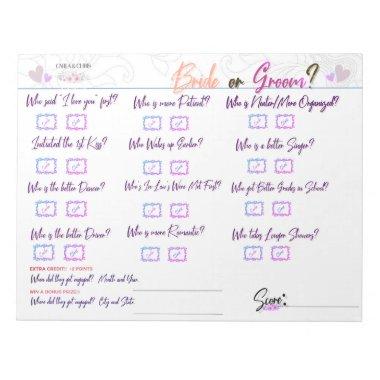 CARLA & CHRIS
Bride or Groom?
Who said "I love you" first?
Who is more Patient?
Who is Neater/More Organized?
Initiated the 1st Kiss?
Who Wakes up Earlier?
Who is a better Singer?
Who is the better Dancer?
Who's In-Law's Were Met First?
Who got Better Grades in School?
Who is the better Driver?
Who is more Romantic?
Who takes Longer Showers?
EXTRA CREDIT! +2 POINTS
When did they get engaged? Month and Year.
WIN A BONUS PRIZE!
Where did they get engaged? City and State.
Score: